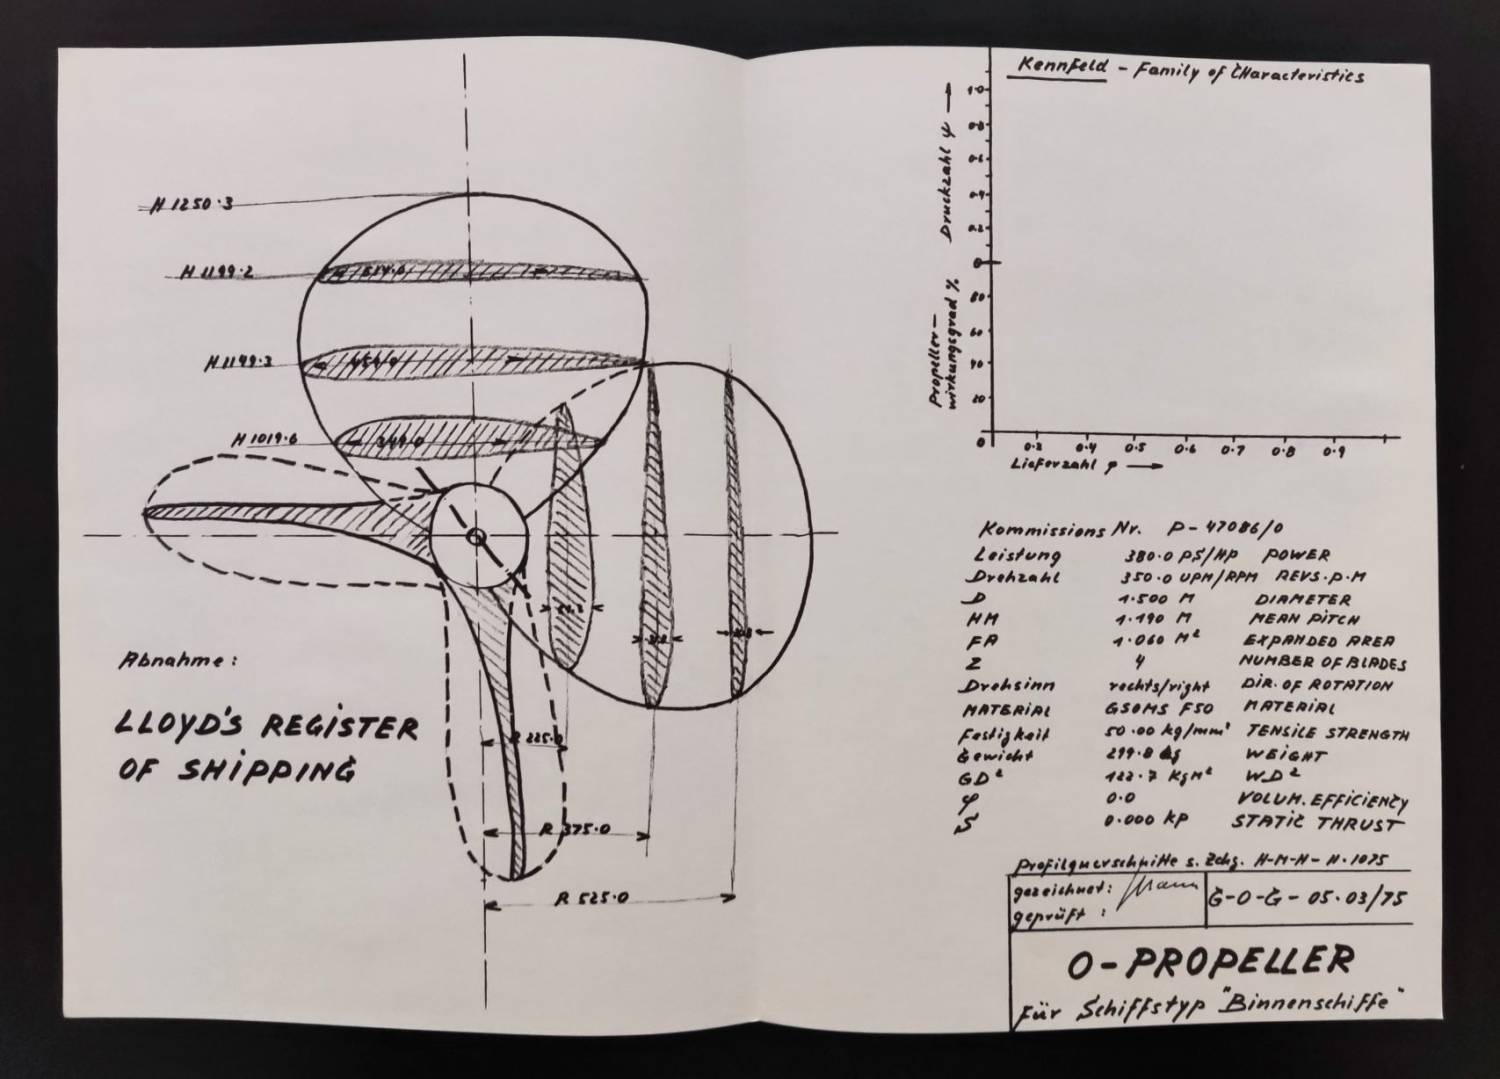 H 1250.3
H 1199.2
H 1149.3
454.0
H 1019.6
349.0
Abnahme:
LLOYD'S REGISTER
OF SHIPPING
R 225.0
R 375.0
R 525.0
Kennfeld - Family of Characteristics
Druckzahl ψ
1.0
0.8
0.6
0.4
0.2
0
Propeller-
wirkungsgrad %
80
60
40
20
0
0.2 0.4 0.5 0.6 0.7 0.8 0.9
Lieferzahl φ
Kommissions Nr. P-47086/0
Leistung 380.0 PS/HP POWER
Drehzahl 350.0 UPM/RPM REVS.P.M
D 1.500 M DIAMETER
HM 1.190 M MEAN PITCH
FA 1.060 M² EXPANDED AREA
Z 4 NUMBER OF BLADES
Drehsinn rechts/right DIR. OF ROTATION
MATERIAL GSOMS F50 MATERIAL
Festigkeit 50.00 kg/mm² TENSILE STRENGTH
Gewicht 299.8 kg WEIGHT
GD² 122.7 KgM² WD²
φ 0.0 VOLUM. EFFICIENCY
S 0.000 KP STATIC THRUST
Profilquerschnitte s. Zchg. H-M-H-N.1075
gezeichnet:
geprüft :
G-O-G- 05.03/75
O-PROPELLER
Für Schiffstyp "Binnenschiffe"